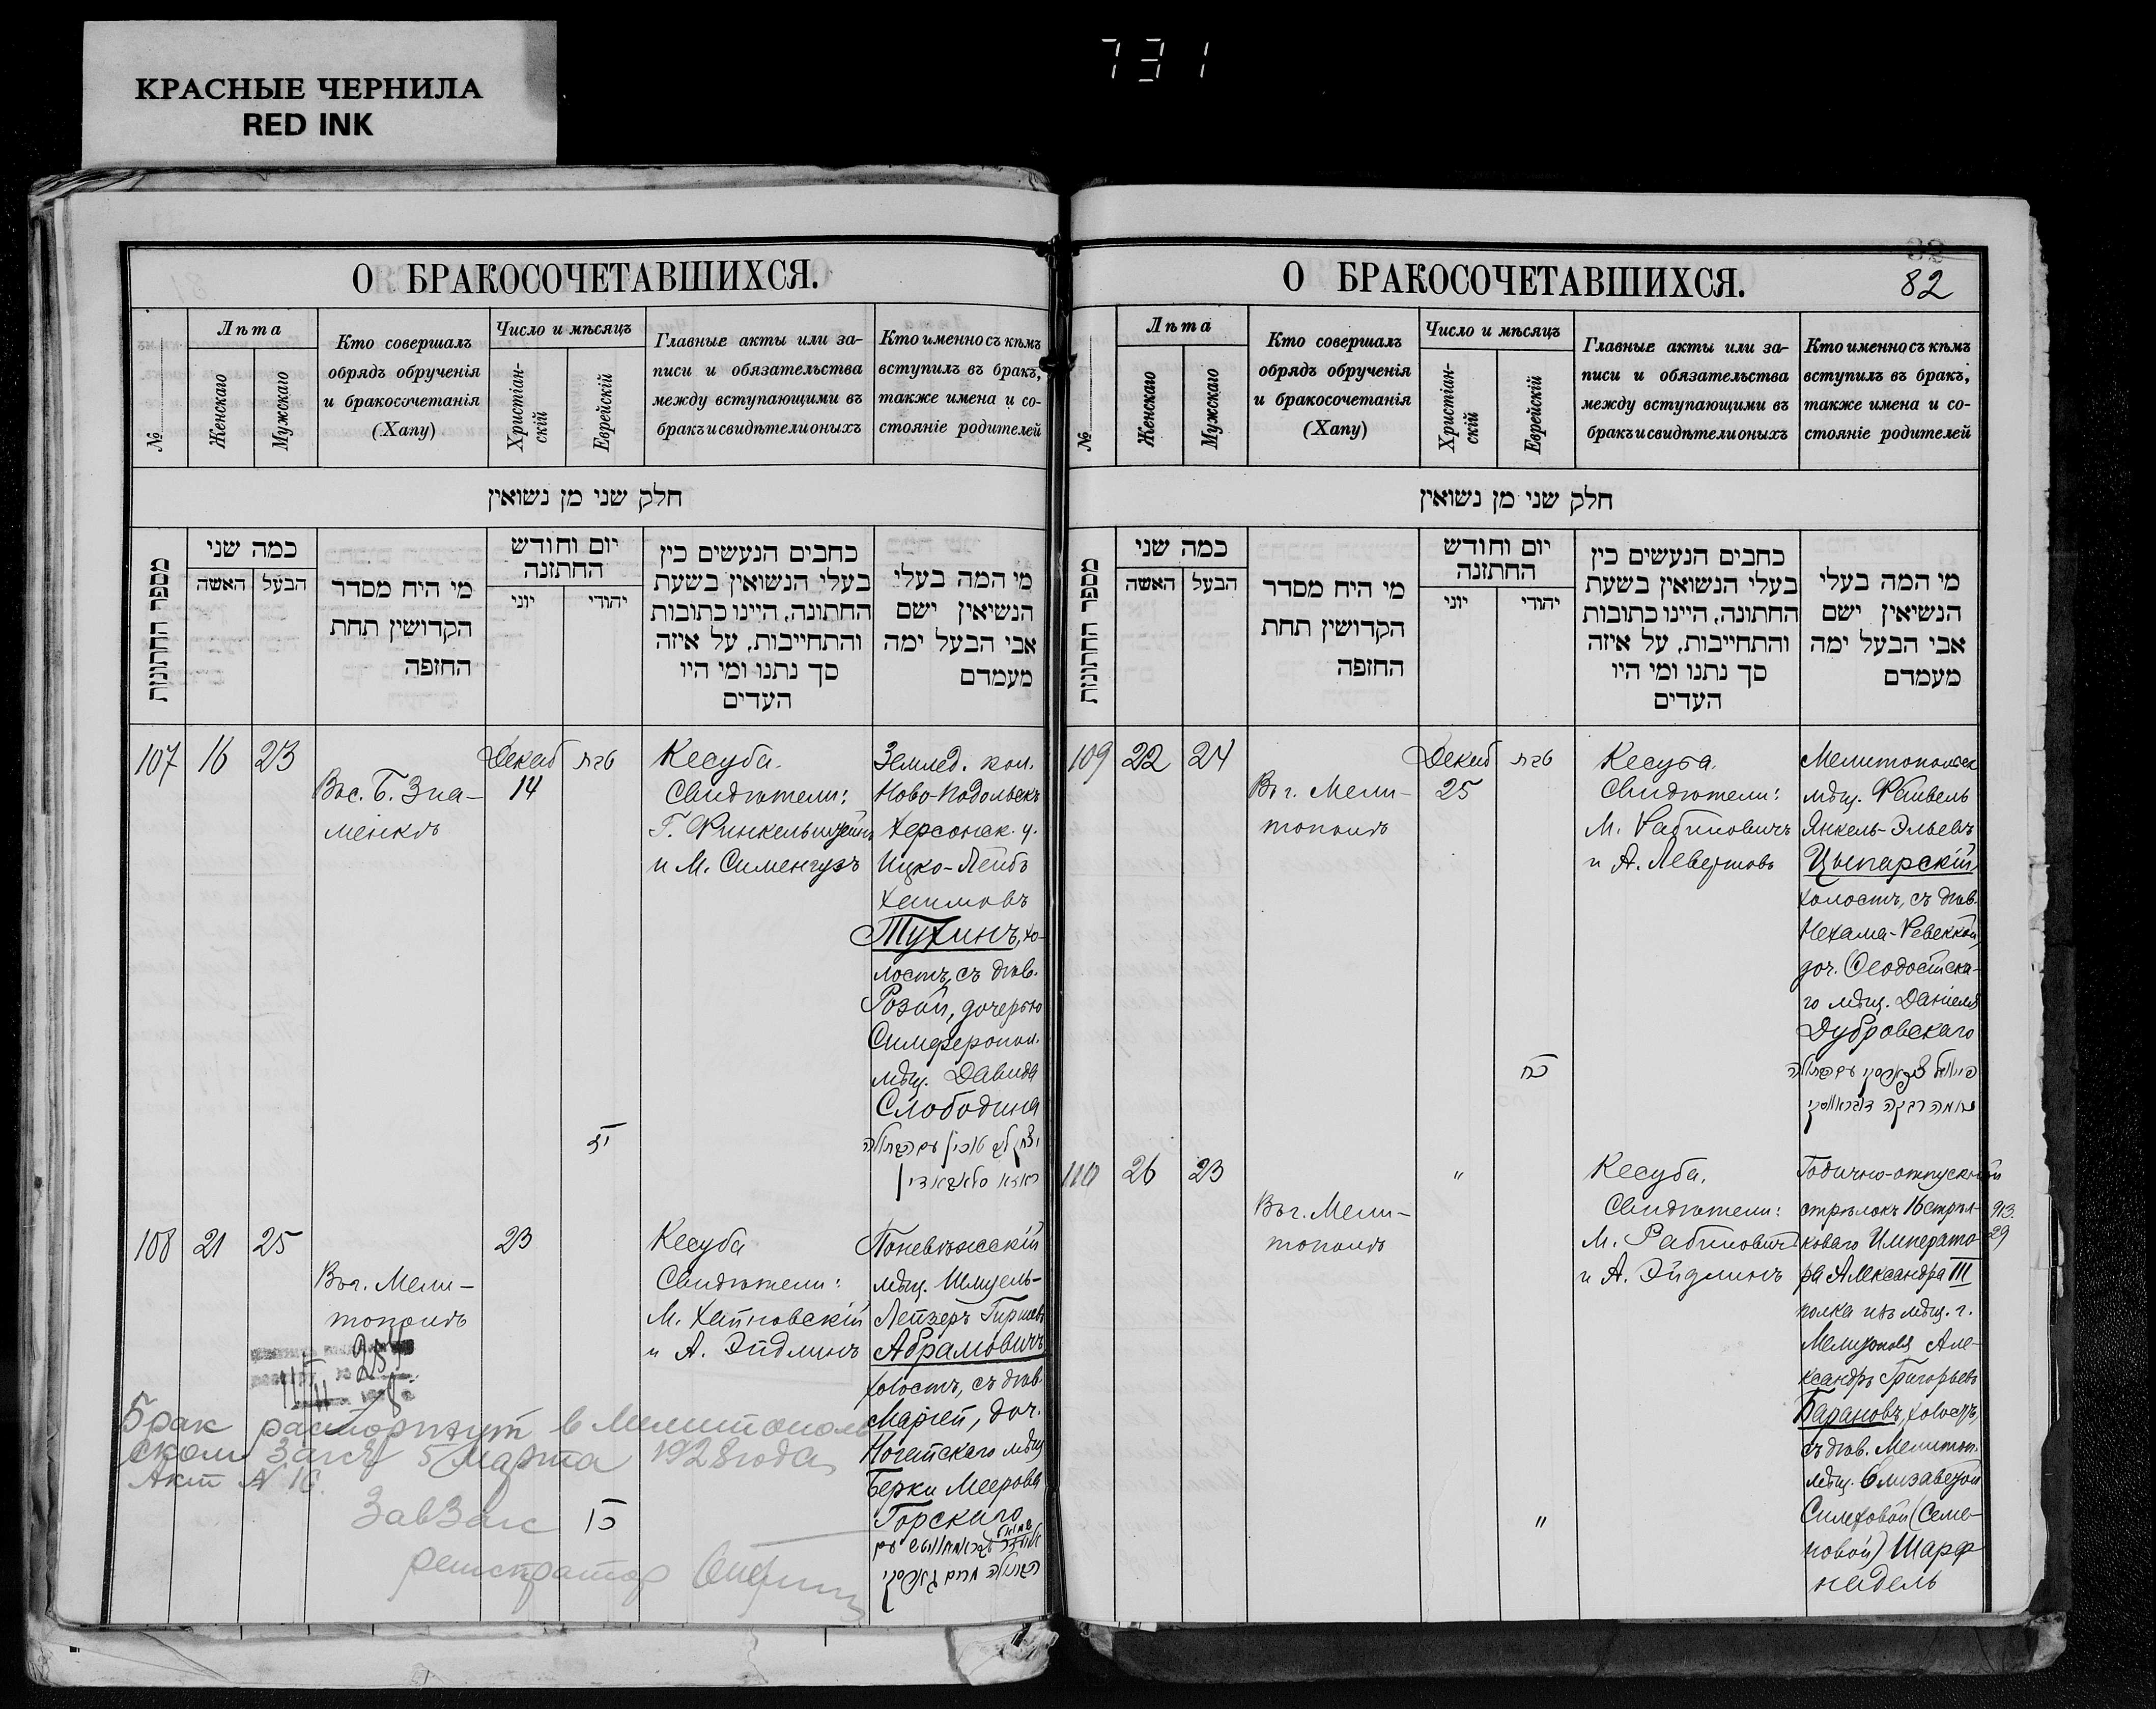 КРАСНЫЕ ЧЕРНИЛА
RED INK
731
О БРАКОСОЧЕТАВШИХСЯ.
№
Лѣта
Женскаго
Мужскаго
Кто совершалъ
обрядъ обрученія
и бракосочетанія
(Хапу)
Число и мѣсяцъ
Христіан-
скій
Еврейскій
Главные акты или за-
писи и обязательства
между вступающими въ
бракъ и свидѣтели оныхъ
Кто именно съ кѣмъ
вступилъ въ бракъ,
также имена и со-
стояніе родителей
חלק שני מן נשואין
מספר החתונות
כמה שני
האשה
הבעל
מי היח מסדר
הקדושין תחת
החופה
יום וחודש
החתונה
יוני
יהודי
כחבים הנעשים כין
בעלי הנשואין בשעת
החתונה, היינו כתובות
והתחייבות, על איזה
סך נתנו ומי היו
העדים
מי המה בעלי
הנשיאין ישם
אבי הבעל ימה
מעמדם
107
16
23
Вос. Б. Зна-
менкѣ
Декаб
14
טבת
יד
Кесуба.
Свидѣтели:
Г. Финкельштейнъ
и М. Сименгузъ
Землед. кол.
Ново-Подольскъ
Херсонск. у.
Ицко-Лейбъ
Хаимовъ
Тухинъ, хо-
лостъ, съ дѣв.
Розой, дочерью
Симферопол.
мѣщ. Давида
Слободина
108
21
25
Въ г. Мели-
тополѣ
23
כו
Кесуба
Свидѣтели:
М. Хайновскій
и А. Эйдлинъ
Поневѣжскій
мѣщ. Шмуель-
Лейзеръ Гиршевъ
Абрамовичъ
холостъ, съ дѣв.
Маріей, доч.
Ногайскаго мѣщ
Берки Меерова
Горскаго
Брак расторгнут в Мелитополь
ском Загсе 5 марта 1928 года
Акт № 16.
ЗавЗагс
регистратор
О БРАКОСОЧЕТАВШИХСЯ.
82
№
Лѣта
Женскаго
Мужскаго
Кто совершалъ
обрядъ обрученія
и бракосочетанія
(Хапу)
Число и мѣсяцъ
Христіан-
скій
Еврейскій
Главные акты или за-
писи и обязательства
между вступающими въ
бракъ и свидѣтели оныхъ
Кто именно съ кѣмъ
вступилъ въ бракъ,
также имена и со-
стояніе родителей
חלק שני מן נשואין
מספר החתונות
כמה שני
האשה
הבעל
מי היח מסדר
הקדושין תחת
החופה
יום וחודש
החתונה
יוני
יהודי
כחבים הנעשים כין
בעלי הנשואין בשעת
החתונה, היינו כתובות
והתחייבות, על איזה
סך נתנו ומי היו
העדים
מי המה בעלי
הנשיאין ישם
אבי הבעל ימה
מעמדם
109
22
24
Въ г. Мели-
тополѣ
Декаб
25
טבת
כח
Кесуба.
Свидѣтели:
М. Рабиновичъ
и А. Левертовъ
Мелитопольск
мѣщ. Файвель
Янкель-Эльевъ
Цыпарскій
холостъ, съ дѣв.
Нехама-Ревеккой,
доч. Ѳеодосійска-
го мѣщ. Даніеля
Дубровскаго
נחמה רבקה דובראווסקי
110
26
23
Въ г. Мели-
тополѣ
"
"
Кесуба.
Свидѣтели:
М. Рабиновичъ
и А. Эйдлинъ
Годично-отпускной
стрѣлокъ 16 стрѣл-
коваго Императо-
ра Александра III
полка изъ мѣщ. г.
Мелитополя Але-
ксандръ Григорьевъ
Барановъ, холостъ,
съ дѣв. Мелитоп.
мѣщ. Елизаветой
Симховой (Семе-
новой) Шарф
надель
913.
29